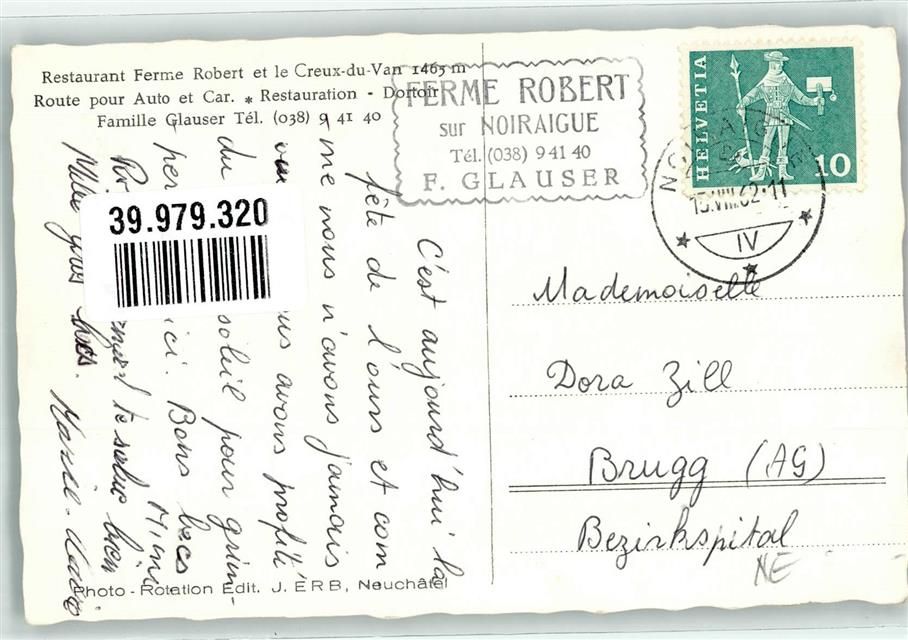 Restaurant Ferme Robert et le Creux-du-Van 1465 m
Route pour Auto et Car. * Restauration - Dortoir
Famille Glauser Tél. (038) 9 41 40
FERME ROBERT
sur NOIRAIGUE
Tél. (038) 9 41 40
F. GLAUSER
HELVETIA
10
IV
39.979.320
C'est aujourd'hui la
fête de l'ours et com
me nous n'avons jamais
vu avons profité
du soleil pour grim
per ici. Bons becs
Mimi
te salue bien
Mille gros becs. Marie-
Mademoiselle
Dora Zill
Brugg (AG)
Bezirkspital
NE
Photo - Rotation Edit. J. ERB, Neuchâtel